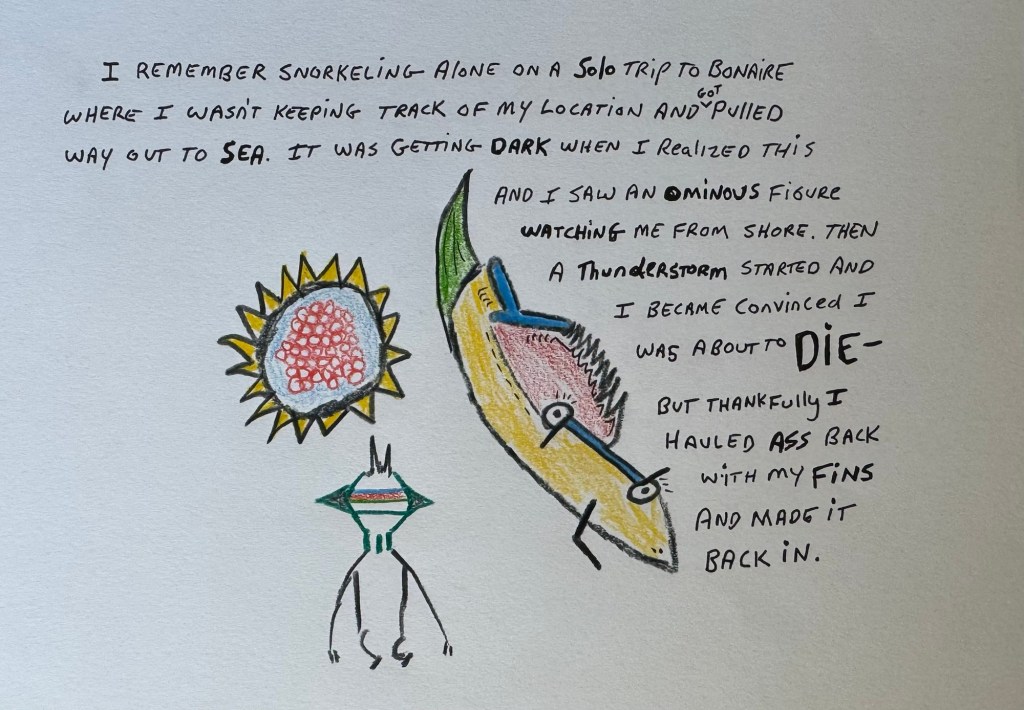 I REMEMBER SNORKELING ALONE ON A SOLO TRIP TO BONAIRE
WHERE I WASN'T KEEPING TRACK OF MY LOCATION AND GOT PULLED
WAY OUT TO SEA. IT WAS GETTING DARK WHEN I REALIZED THIS
AND I SAW AN OMINOUS FIGURE
WATCHING ME FROM SHORE. THEN
A THUNDERSTORM STARTED AND
I BECAME CONVINCED I
WAS ABOUT TO DIE-
BUT THANKFULLY I
HAULED ASS BACK
WITH MY FINS
AND MADE IT
BACK IN.